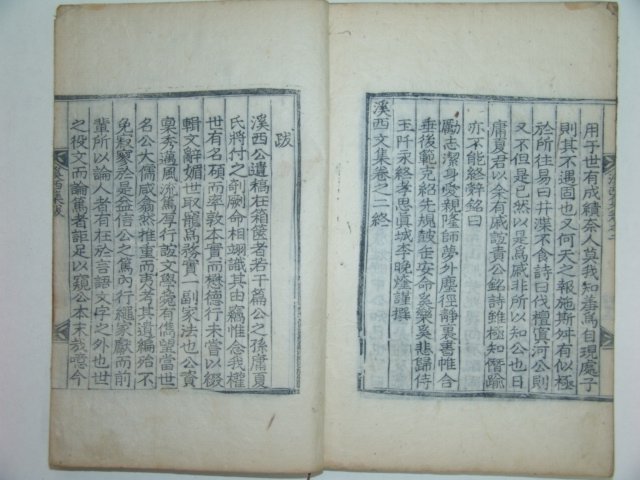 用于世有成績奈人莫我知羞爲自現處子
則其不遇固也又何天之報施斯舛有似極
於所往易曰井渫不食詩曰伐檀寘河公則
又不但是已然以是爲戚非所以知公也日
庸夏君以余有戚誼責公銘詩雖極知僭踰
亦不能終辭銘曰
勵志潔身愛親隆師夢外塵徑靜裏書帷合
垂後範克紹先規皷缶安命奚樂奚悲歸侍
玉阡永終孝思眞城李晩煃謹撰
溪西文集卷之二終
跋
溪西公遺稿在箱篋者若干篇公之孫庸夏
氏將付之剞劂命相翊識其由竊惟念我權
世有名碩而率敦本實而懋德行未嘗以綴
輯文辭媚世取寵爲務賣一副家法也公資
稟秀邁風流篤厚行誼文學蔚有儁望當世
名公大儒咸翕然推重而夷考其遺編殆不
免寂寥於是益信公之篤內行繩家獻而前
輩所以論人者有在於言語文字之外也世
之役文而論篤者詎足以窺公本末我噫今